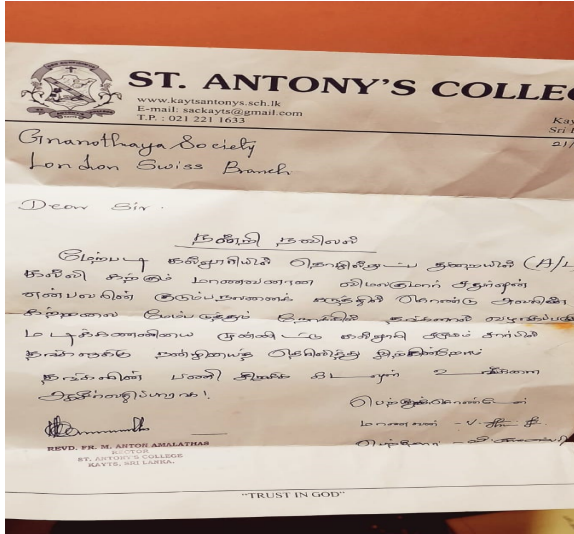 ST. ANTONY'S COLLEG
www.kaytsantonys.sch.lk
E-mail: sackayts@gmail.com
T.P. : 021 221 1633
Kay
Sri L
21/
Gnanothaya Society
London Swiss Branch
Dear Sir.
நன்றி நவிலல்
மேற்படி கல்லூரியில் தொழில்நுட்ப துறையில் (A/L
கல்வி கற்கும் மாணவனான விமலகுமார்
என்பவரின் குடும்ப நிலையை கருத்தில் கொண்டு அவரின்
கற்றலை மேம்படுத்தும் நோக்கில் தங்களால்
மடிக்கணினியை முன்னிட்டு கல்லூரி சமூகம் சார்பில்
தங்களுக்கு நன்றியைத் தெரிவித்து நிற்கின்றோம்
தங்களின் பணி சிறக்க இறைவன் உங்களை
ஆசீர்வதிப்பாராக!.
பெற்றுக்கொண்டோர்
மாணவன் - V.
பெற்றோர் -
REVD. FR. M. ANTON AMALATHAS
RECTOR
ST. ANTONY'S COLLEGE
KAYTS, SRI LANKA.
"TRUST IN GOD"